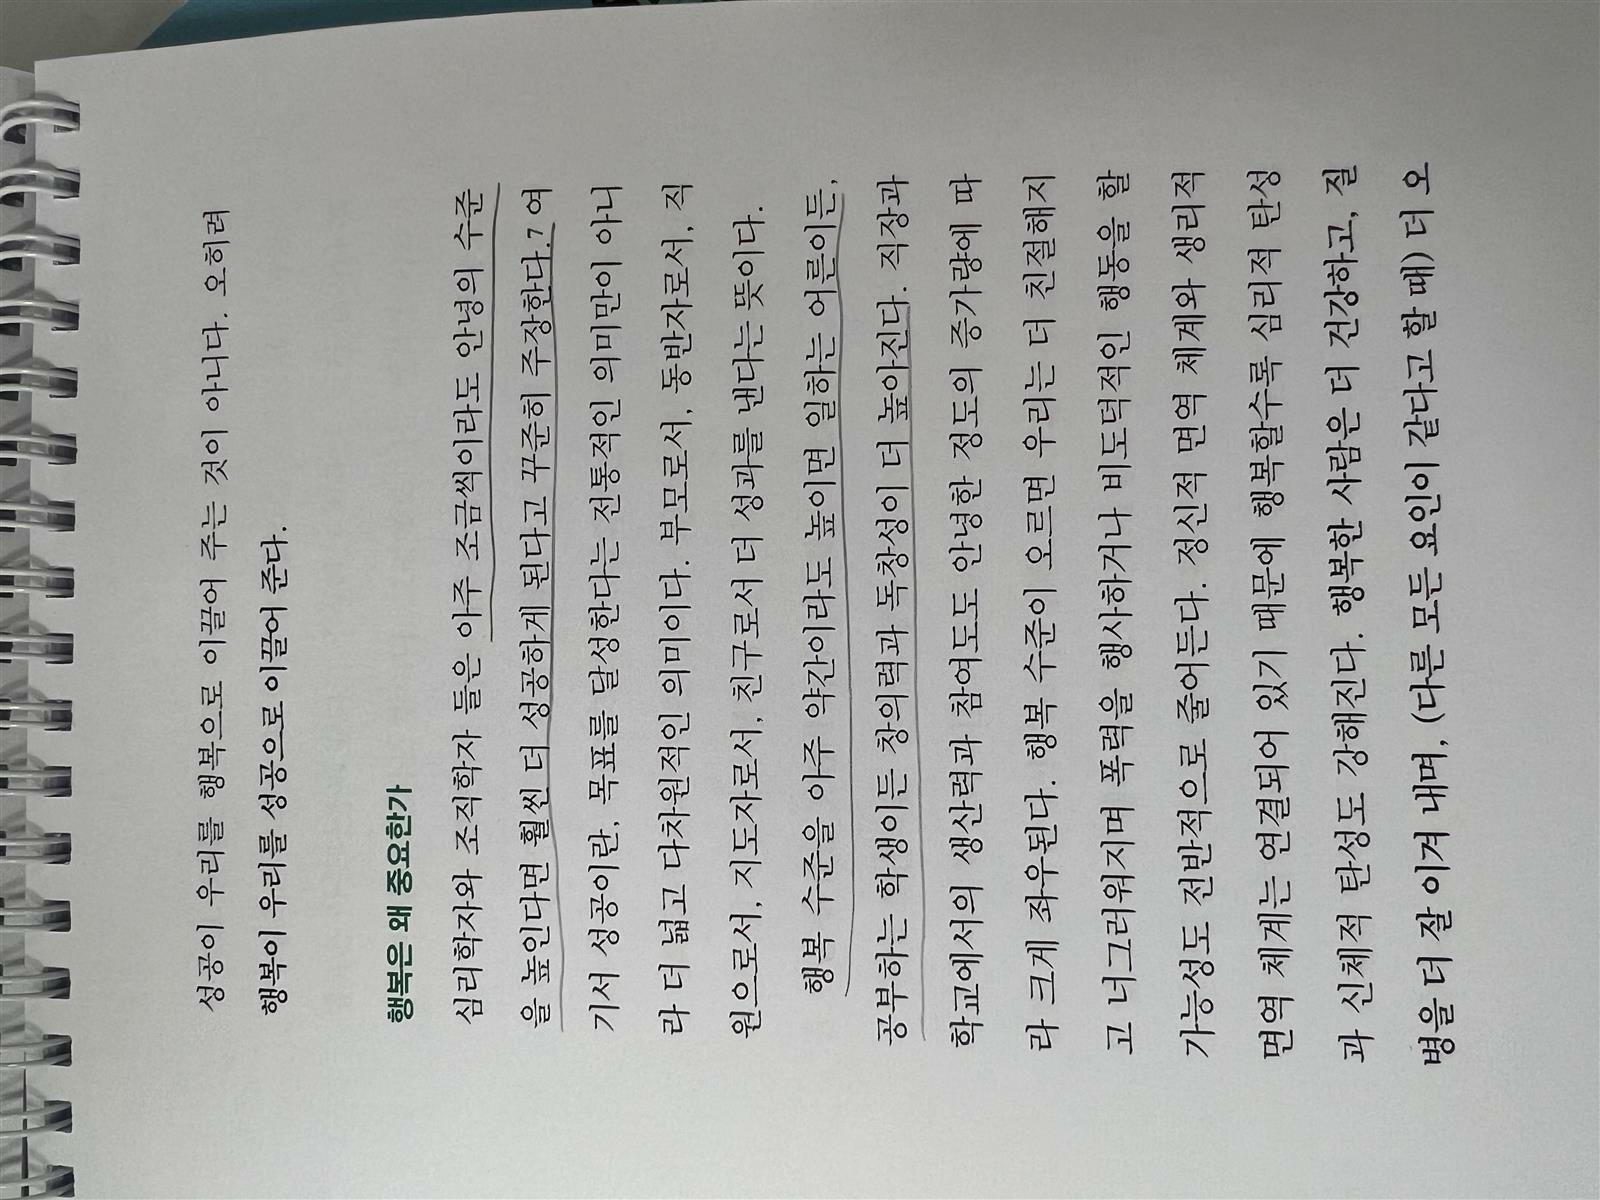 성공이 우리를 행복으로 이끌어 주는 것이 아니다. 오히려
행복이 우리를 성공으로 이끌어 준다.
행복은 왜 중요한가
심리학자와 조직학자 들은 아주 조금씩이라도 안녕의 수준
을 높인다면 훨씬 더 성공하게 된다고 꾸준히 주장한다.7 여
기서 성공이란, 목표를 달성한다는 전통적인 의미만이 아니
라 더 넓고 다차원적인 의미이다. 부모로서, 동반자로서, 직
원으로서, 지도자로서, 친구로서 더 성과를 낸다는 뜻이다.
행복 수준을 아주 약간이라도 높이면 일하는 어른이든,
공부하는 학생이든 창의력과 독창성이 더 높아진다. 직장과
학교에서의 생산력과 참여도도 안녕한 정도의 증가량에 따
라 크게 좌우된다. 행복 수준이 오르면 우리는 더 친절해지
고 너그러워지며 폭력을 행사하거나 비도덕적인 행동을 할
가능성도 전반적으로 줄어든다. 정신적 면역 체계와 생리적
면역 체계는 연결되어 있기 때문에 행복할수록 심리적 탄성
과 신체적 탄성도 강해진다. 행복한 사람은 더 건강하고, 질
병을 더 잘 이겨 내며, (다른 모든 요인이 같다고 할 때) 더 오